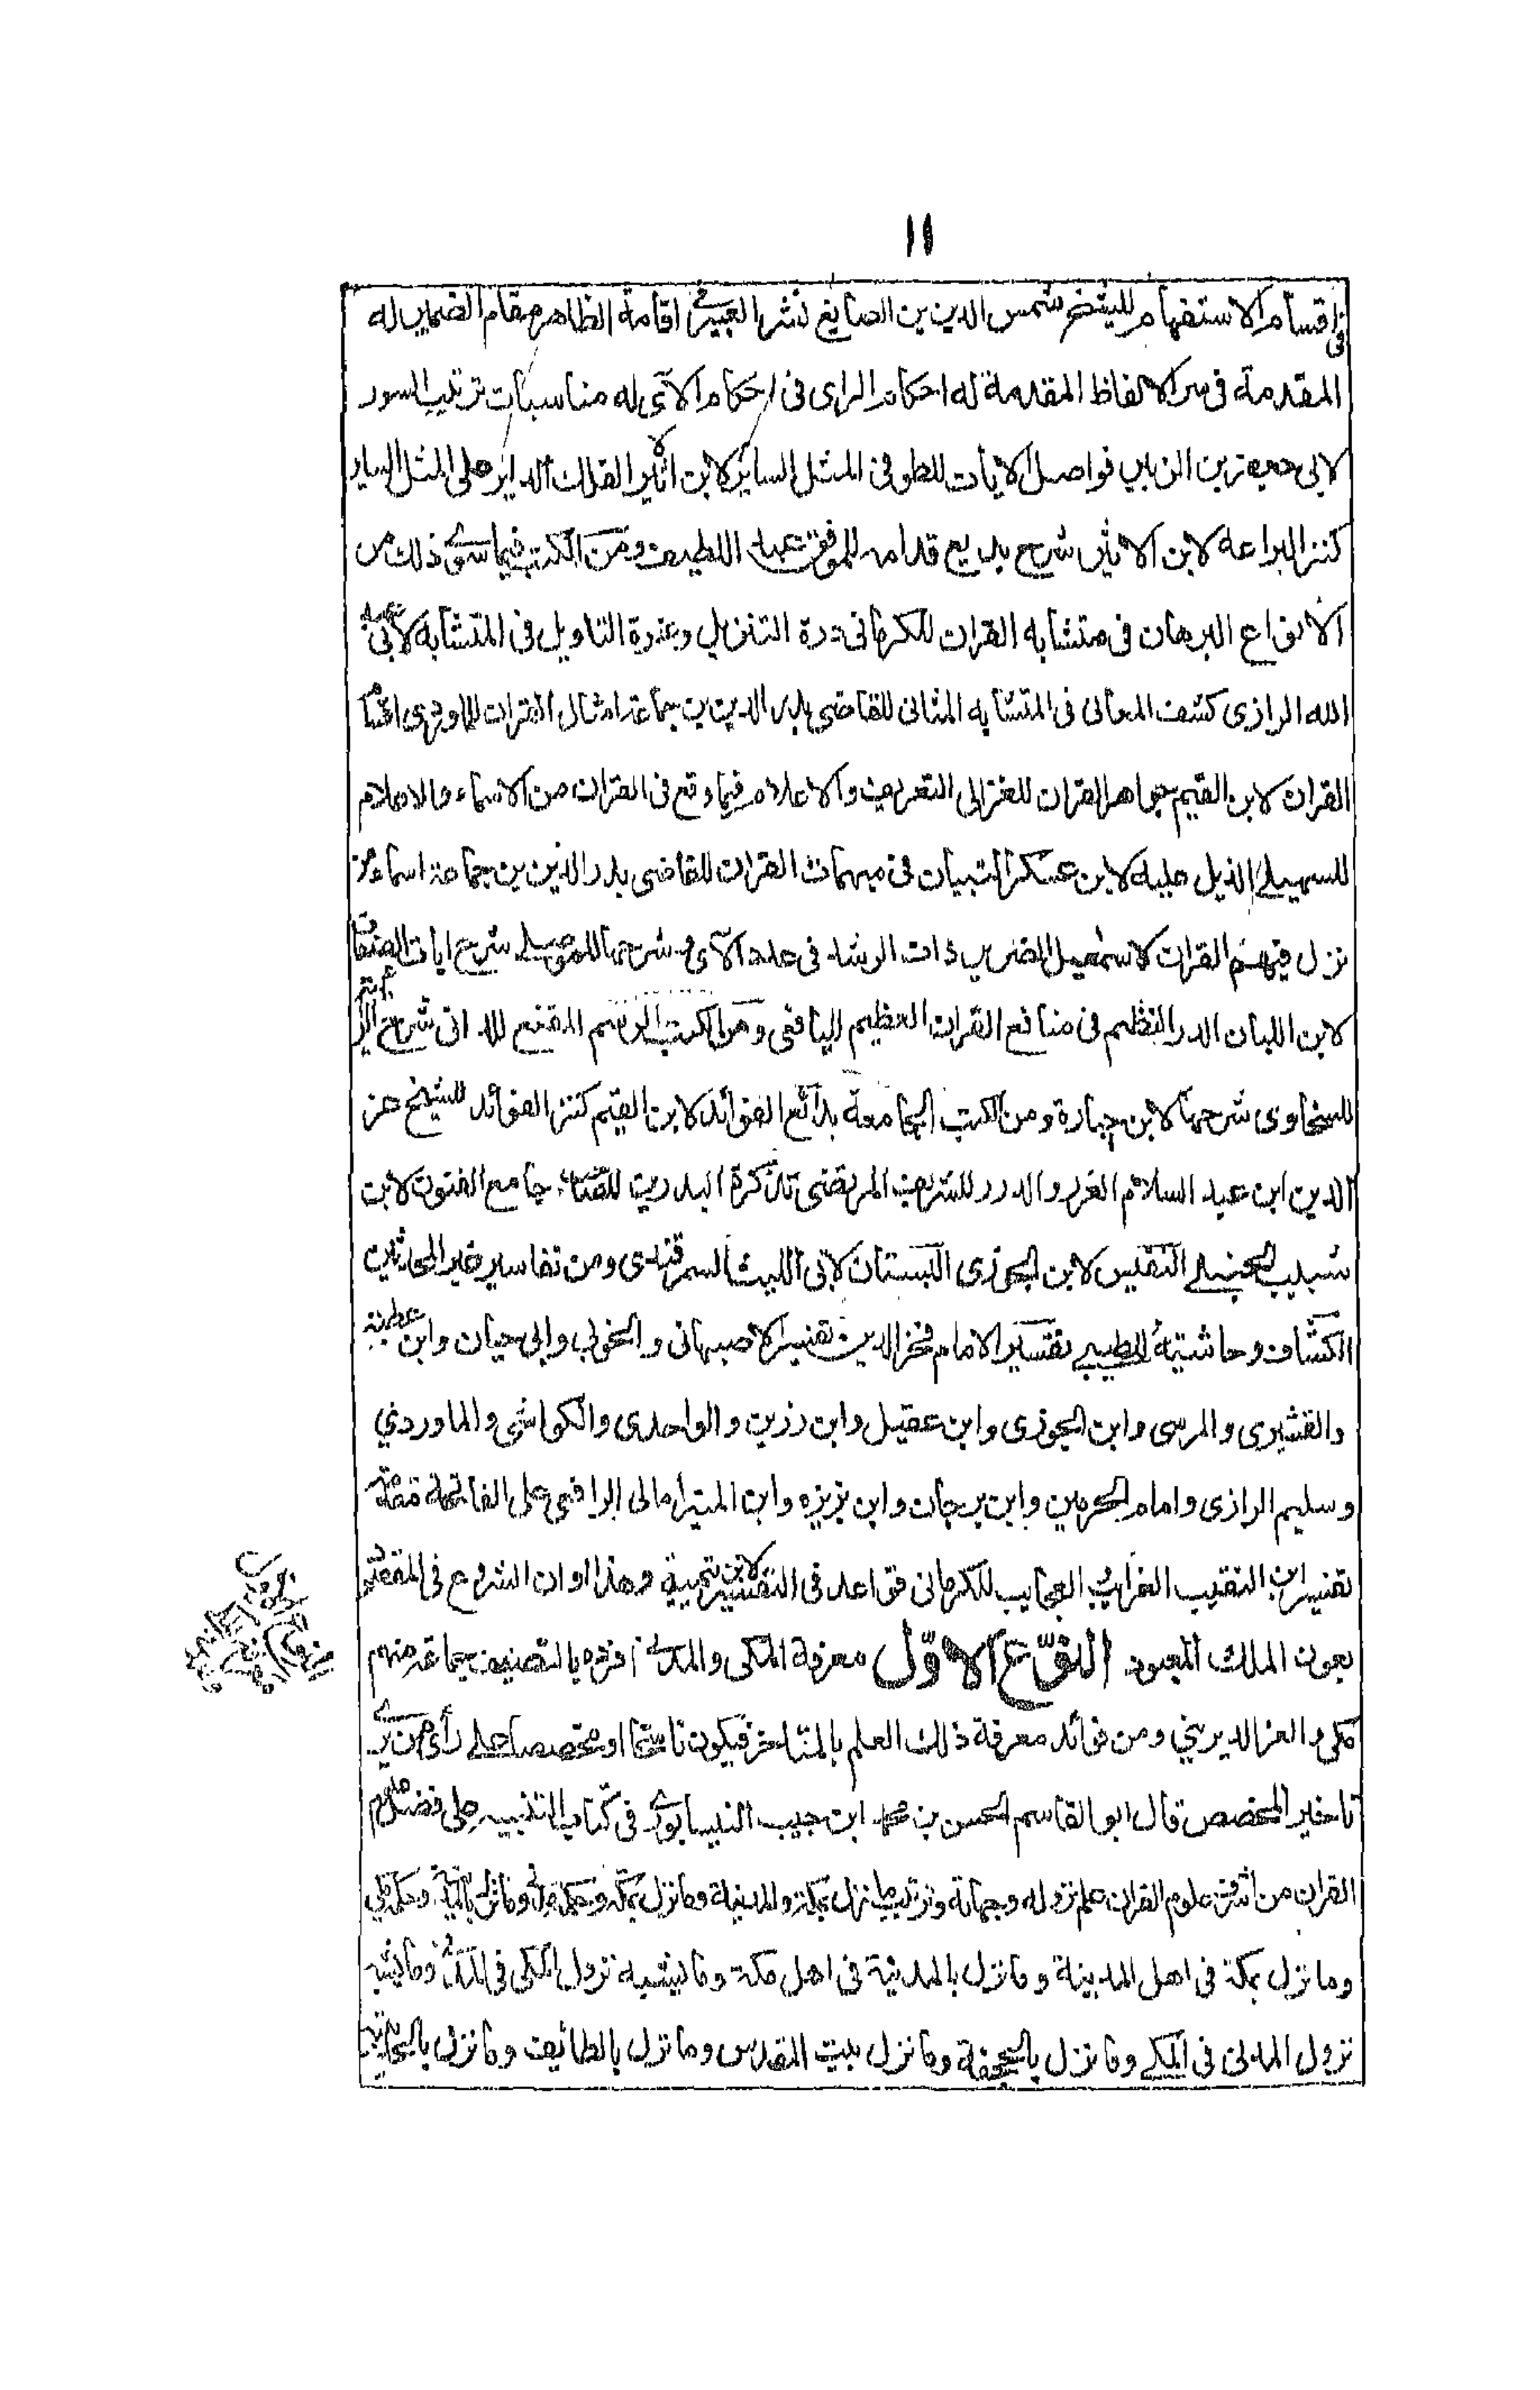 ١١
فى اقسام الاستفهام للشيخ شمس الدين بن الصايغ نشر العبير فى اقامة الظاهر مقام الضمير له
المقدمة فى سر الالفاظ المقدمة له احكام الراى فى احكام الآى له مناسبات ترتيب السور
لابى جعفر بن الزبير فواصل الايات للطوفى المثل السائر لابن الاثير الفلك الداير على المثل الساير
كنز البراعة لابن الاثير شرح بديع قدامه للموفق عبد اللطيف ومن الكتب فيما سوى ذلك من
الانواع البرهان فى متشابه القران للكرمانى درة التنزيل وغرة التاويل فى المتشابه لابى عبد
الله الرازى كشف المعانى فى المتشابه المثانى للقاضى بدر الدين بن جماعة امثال القران للماوردى اقسام
القران لابن القيم جواهر القران للغزالى التعريف والاعلام فيما وقع فى القران من الاسماء والاعلام
للسهيلى الذيل عليه لابن عسكر التبيان فى مبهمات القران للقاضى بدر الدين بن جماعة اسماء من
نزل فيهم القران لاسمعيل الضرير ذات الرشد فى عدد الآى وشرحها للموصلى شرح ايات الصفات
لابن اللبان الدر النظيم فى منافع القران العظيم لليافعى ومن الكتب الرسم المقنع للدانى شرح الرائية
للسخاوى شرحها لابن جبارة ومن الكتب الجامعة بدائع الفوائد لابن القيم كنز الفوائد للشيخ عز
الدين ابن عبد السلام الغرر والدرر للشريف المرتضى تذكرة البدر بن جامع الفنون لابن
شبيب الحنبلى النفيس لابن الجوزى البستان لابى الليث السمرقندى ومن تفاسير غير المحدثين
الكشاف وحاشيته للطيبى تفسير الامام فخر الدين تفسير الاصبهانى والحوفى وابى حيان وابن عطية
والقشيرى والمرسى وابن الجوزى وابن عقيل وابن رزين والواحدى والكواشى والماوردي
وسليم الرازى وامام الحرمين وابن برجان وابن بزيزه وابن المنير امالى الرافعى على الفاتحة مقدمة
تفسير ابن النقيب الغرايب العجايب للكرمانى قواعد فى التفسير لابن تيمية وهذا اوان الشروع فى المقصود
بعون الملك المعبود النوّع الاوّل معرفة المكى والمدنى افرده بالتصنيف جماعة منهم
مكى والعز الديرينى ومن فوائد معرفة ذلك العلم بالمتاخر فيكون ناسخا او مخصصا على رأى من يرى
تاخير المخصص قال ابو القاسم الحسن بن محمد ابن حبيب النيسابورى فى كتاب التنبيه على فضل علوم
القران من اشرف علوم القران علم نزوله وجهاته وترتيب ما نزل بمكة والمدينة وما نزل بمكة وحكمه مدنى وما نزل بالمدينة وحكمه مكى
وما نزل بمكة فى اهل المدينة وما نزل بالمدينة فى اهل مكة وما يشبه نزول المكى فى المدنى وما يشبه
نزول المدنى فى المكى وما نزل بالجحفة وما نزل ببيت المقدس وما نزل بالطائف وما نزل بالحديبية